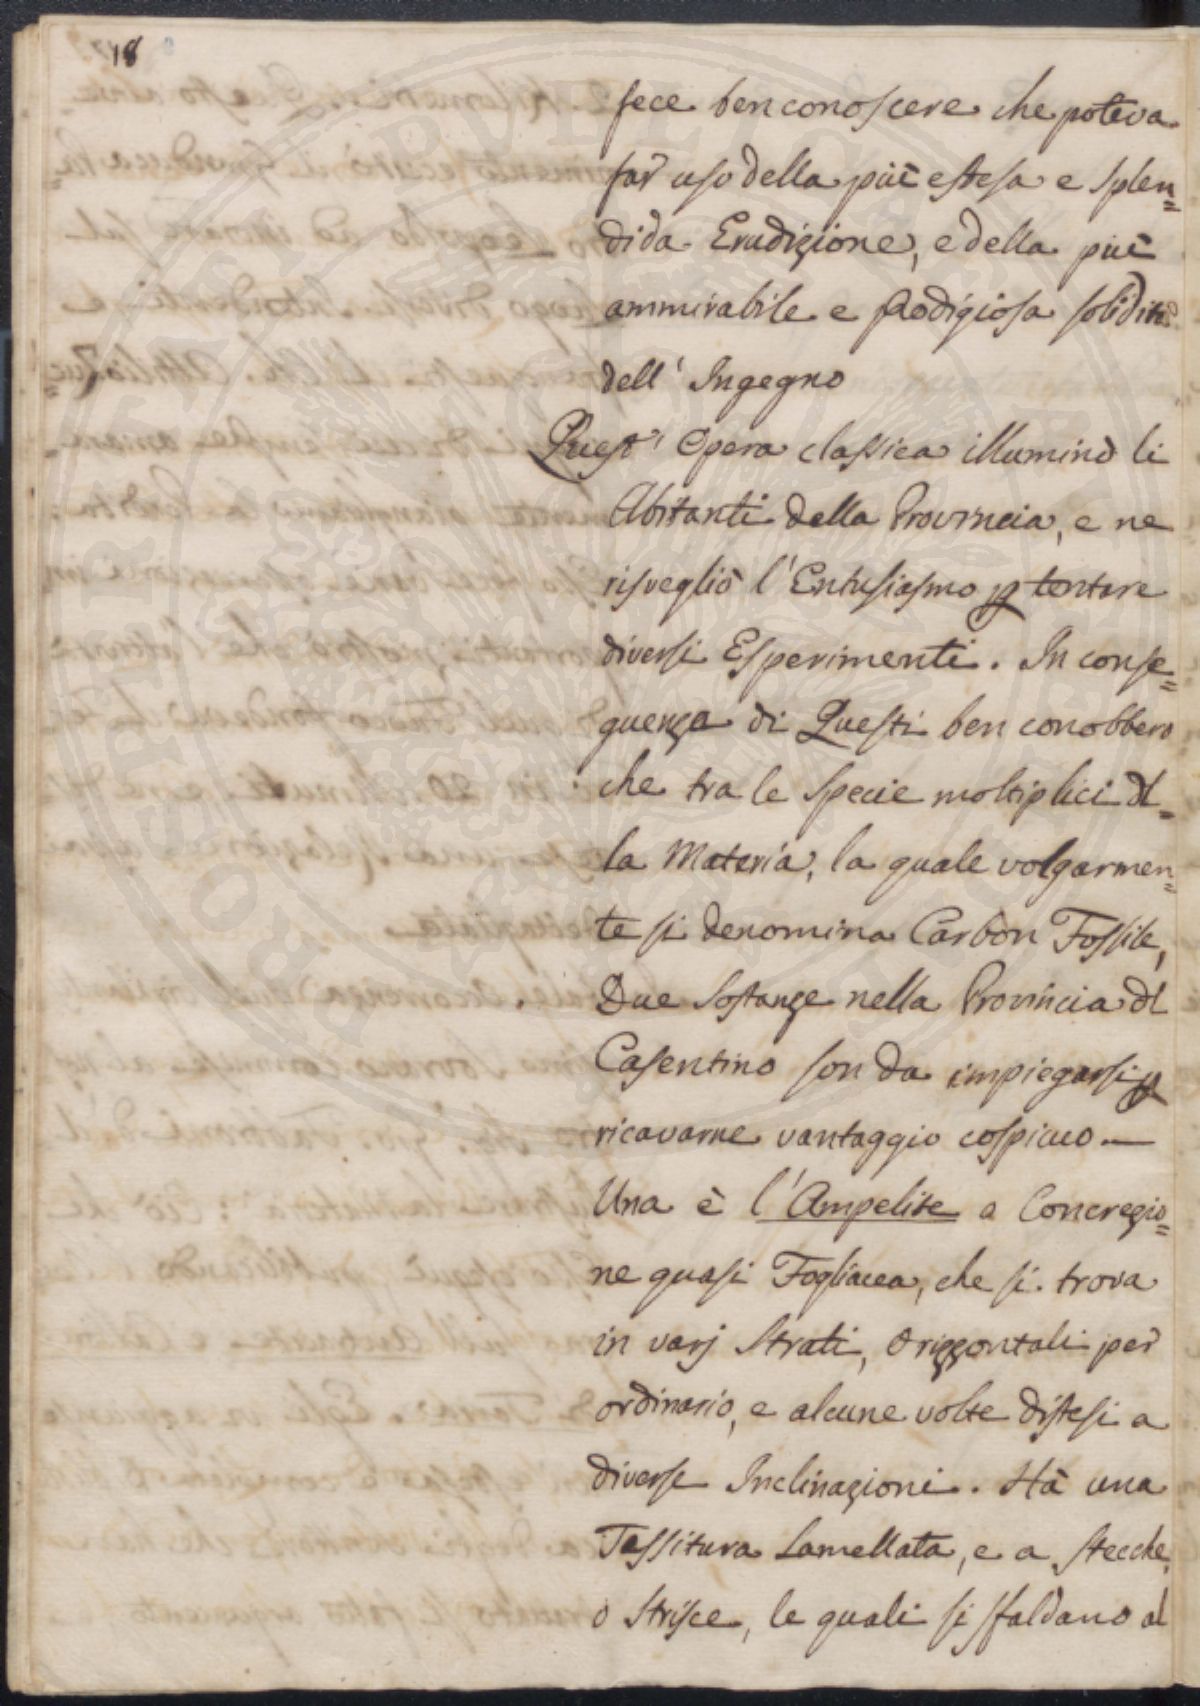 18
fece ben conoscere che poteva
far uso della più estesa e splen=
dida Erudizione, e della più
ammirabile e prodigiosa solidità
dell' Ingegno
Quest' Opera classica illuminò li
Abitanti della Provincia, e ne
risvegliò l'Entusiasmo p tentare
diversi Esperimenti. In conse=
guenza di Questi ben conobbero
che tra le specie moltiplici dl=
la Materia, la quale volgarmen=
te si denomina Carbon Fossile,
Due Sostanze nella Provincia dl
Casentino son da impiegarsi p
ricavarne vantaggio cospicuo —
Una è l'Ampelite a Concrezio=
ne quasi Fogliacea, che si trova
in varj Strati, Orizzontali per
ordinario, e alcune volte distesi a
diverse Inclinazioni. Hà una
Tessitura Lamellata, e a Stecche,
o Strisce, le quali si sfaldano al